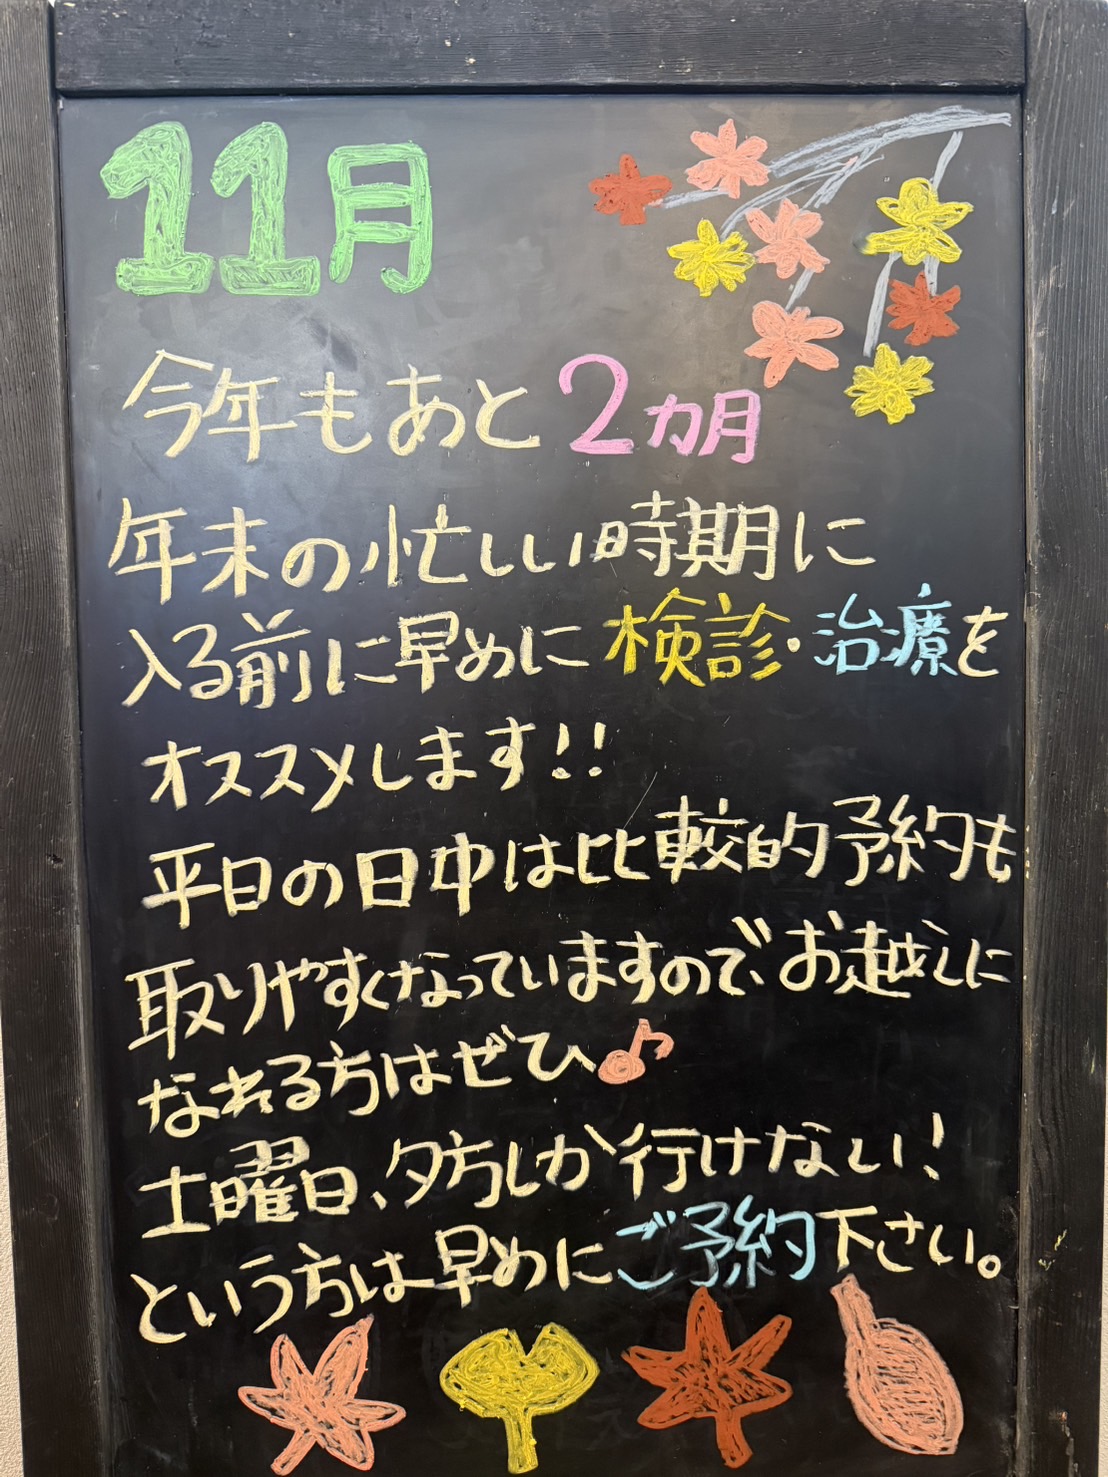 11月
今年もあと2カ月
年末の忙しい時期に
入る前に早めに検診・治療を
オススメします!!
平日の日中は比較的予約も
取りやすくなっていますので、お越しに
なれる方はぜひ♪
土曜日、夕方しか行けない!
という方は早めにご予約下さい。